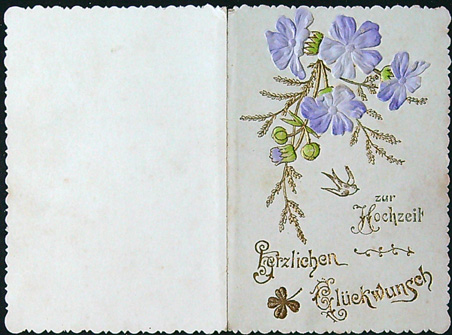 zur
Hochzeit
Herzlichen
Glückwunsch